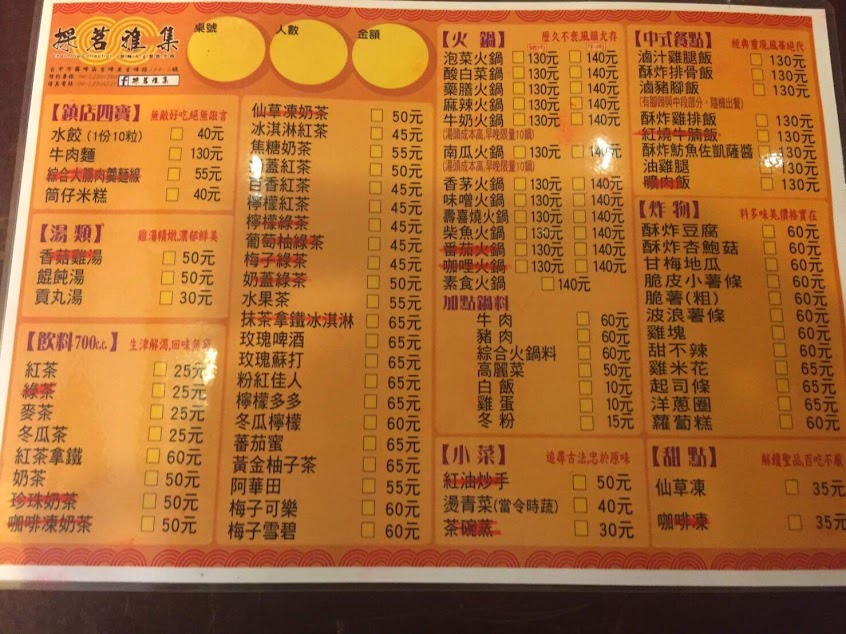 採茗雅集
桌號
人數
金額
採茗雅集
【鎮店四寶】 無敵好吃,絕無虛言
水餃(1份10粒) 40元
牛肉麵 130元
綜合大腸肉羹麵線 55元
筒仔米糕 40元
【湯類】 雞湯精燉,濃郁鮮美
香菇雞湯 50元
餛飩湯 50元
貢丸湯 30元
【飲料700c.c.】 生津解渴,回味無窮
紅茶 25元
綠茶 25元
麥茶 25元
冬瓜茶 25元
紅茶拿鐵 60元
奶茶 50元
珍珠奶茶 50元
咖啡凍奶茶 50元
仙草凍奶茶 50元
冰淇淋紅茶 45元
焦糖奶茶 55元
奶蓋紅茶 50元
百香紅茶 45元
檸檬紅茶 45元
檸檬綠茶 45元
葡萄柚綠茶 45元
梅子綠茶 45元
奶蓋綠茶 50元
水果茶 55元
抹茶拿鐵冰淇淋 65元
玫瑰啤酒 65元
玫瑰蘇打 55元
粉紅佳人 65元
檸檬多多 65元
冬瓜檸檬 60元
蕃茄蜜 65元
黃金柚子茶 65元
阿華田 55元
梅子可樂 60元
梅子雪碧 60元
【火鍋】 歷久不衰,風韻尤存
泡菜火鍋 130元 140元
酸白菜鍋 130元 140元
藥膳火鍋 130元 140元
麻辣火鍋 130元 140元
牛奶火鍋 130元 140元
(湯頭成本高,早晚限量10鍋)
南瓜火鍋 130元 140元
(湯頭成本高,早晚限量10鍋)
香茅火鍋 130元 140元
味噌火鍋 130元 140元
壽喜燒火鍋 130元 140元
柴魚火鍋 130元 140元
番茄火鍋 130元 140元
咖哩火鍋 130元 140元
素食火鍋 140元
加點鍋料
牛肉 60元
豬肉 60元
綜合火鍋料 60元
高麗菜 50元
白飯 10元
雞蛋 10元
冬粉 15元
【小菜】 追尋古法,忠於原味
紅油炒手 50元
燙青菜(當令時蔬) 40元
茶碗蒸 30元
【中式餐點】 經典重現,風華絕代
滷汁雞腿飯 130元
酥炸排骨飯 130元
滷豬腳飯 130元
(有腳蹄與中段部分,隨機出餐)
酥炸雞腿飯 130元
紅燒牛腩飯 130元
酥炸魴魚佐凱薩醬 130元
油雞腿 130元
爌肉飯 130元
【炸物】 料多味美,價格實在
酥炸豆腐 60元
酥炸杏鮑菇 60元
甘梅地瓜 60元
脆皮小薯條 60元
脆薯(粗) 60元
波浪薯條 60元
雞塊 60元
甜不辣 60元
雞米花 65元
起司條 65元
洋蔥圈 65元
蘿蔔糕 60元
【甜點】 解饞聖品,百吃不厭
仙草凍 35元
咖啡凍 35元